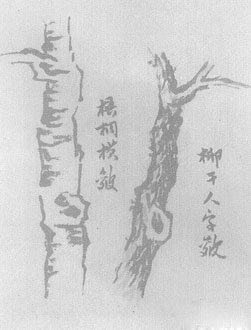 柳干人字皴
梧桐横皴